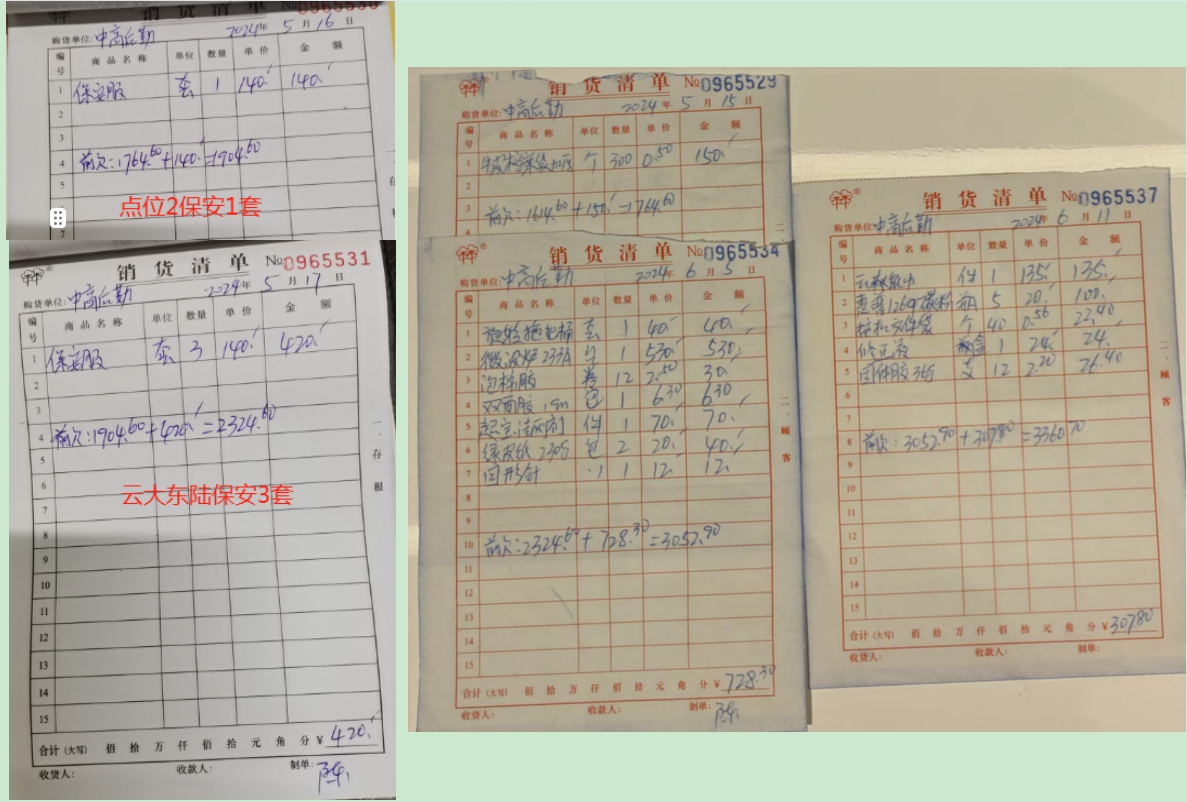 0965530
购货单位:中高后勤 2024年 5 月 16 日
编号 商品名称 单位 数量 单价 金额
1 保安服 套 1 140. 140.
2
3
4 前欠:1764.60+140.=1904.60
5
点位2保安1套
7
销货清单 №0965531
购货单位:中高后勤 2024年 5 月 17 日
编号 商品名称 单位 数量 单价 金额
1 保安服 套 3 140. 420.
2
3
4 前欠:1904.60+420.=2324.60
5
6
云大东陆保安3套
8
9
10
11
12
13
14
15
合计(大写) 佰 拾 万 仟 佰 拾 元 角 分 ¥420.
收货人: 收款人: 制单:陈
一.存根
销货清单 №0965529
购货单位:中高后勤 2024年 5 月 15 日
编号 商品名称 单位 数量 单价 金额
1 个 300 0.50 150.
2
3 前欠:1614.60+150.=1764.60
4
销货清单 №0965534
购货单位:中高后勤 2024年 6 月 5 日
编号 商品名称 单位 数量 单价 金额
1 旋转拖把桶 套 1 40. 40.
2 微波炉233A 台 1 530. 530.
3 泡棉胶 卷 12 2.50 30.
4 双面胶 包 1 6.30 6.30
5 洁厕剂 件 1 70. 70.
6 绿皮纸230S 包 2 20. 40.
7 回形针 1 12. 12.
8
9
10 前欠:2324.60+728.30=3052.90
11
12
13
14
15
合计(大写) 佰 拾 万 仟 佰 拾 元 角 分 ¥728.30
收货人: 收款人: 制单:陈
二.顾客
销货清单 №0965537
购货单位:中高后勤 2024年 6 月 11 日
编号 商品名称 单位 数量 单价 金额
1 件 1 135. 135.
2 惠普126A碳粉 瓶 5 20. 100.
3 拉杆文件袋 个 40 0.56 22.40
4 修正液 盒 1 24. 24.
5 固体胶36g 支 12 2.20 26.40
6
7
8 前欠:3052.90+307.80=3360.70
9
10
11
12
13
14
15
合计(大写) 佰 拾 万 仟 佰 拾 元 角 分 ¥307.80
收货人: 收款人: 制单:
二.顾客